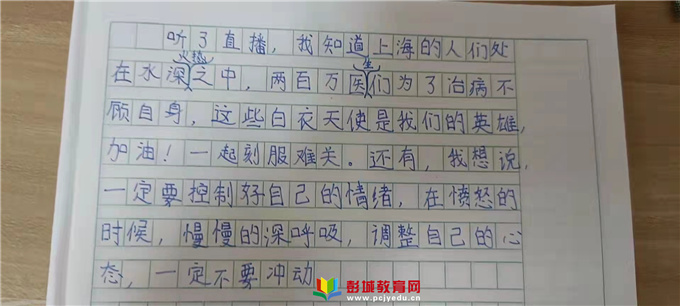 听了直播，我知道上海的人们处
在水深火热之中，两百万医生们为了治病不
顾自身，这些白衣天使是我们的英雄，
加油！一起刻服难关。还有，我想说，
一定要控制好自己的情绪，在愤怒的
时候，慢慢的深呼吸，调整自己的心
态，一定不要冲动
彭城教育网
www.pcjyedu.cn